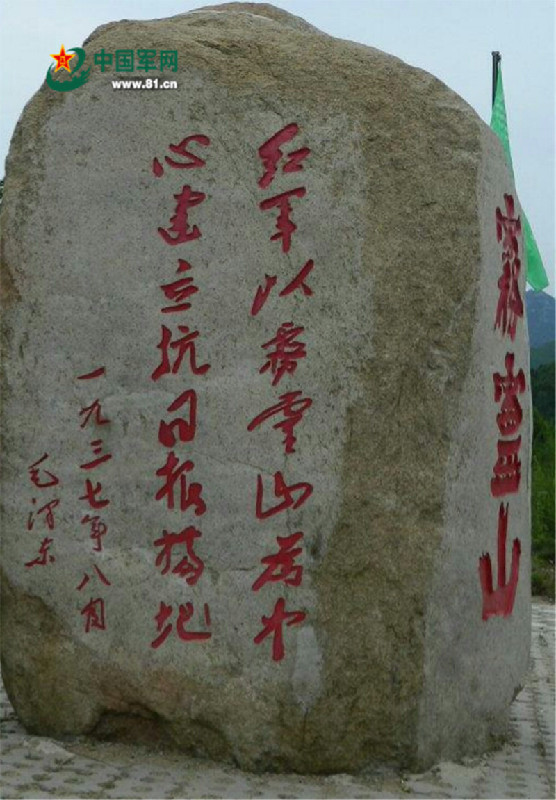 中国军网
www.81.cn
雾灵山
红军以雾灵山为中
心建立抗日根据地
一九三七年八月
毛泽东